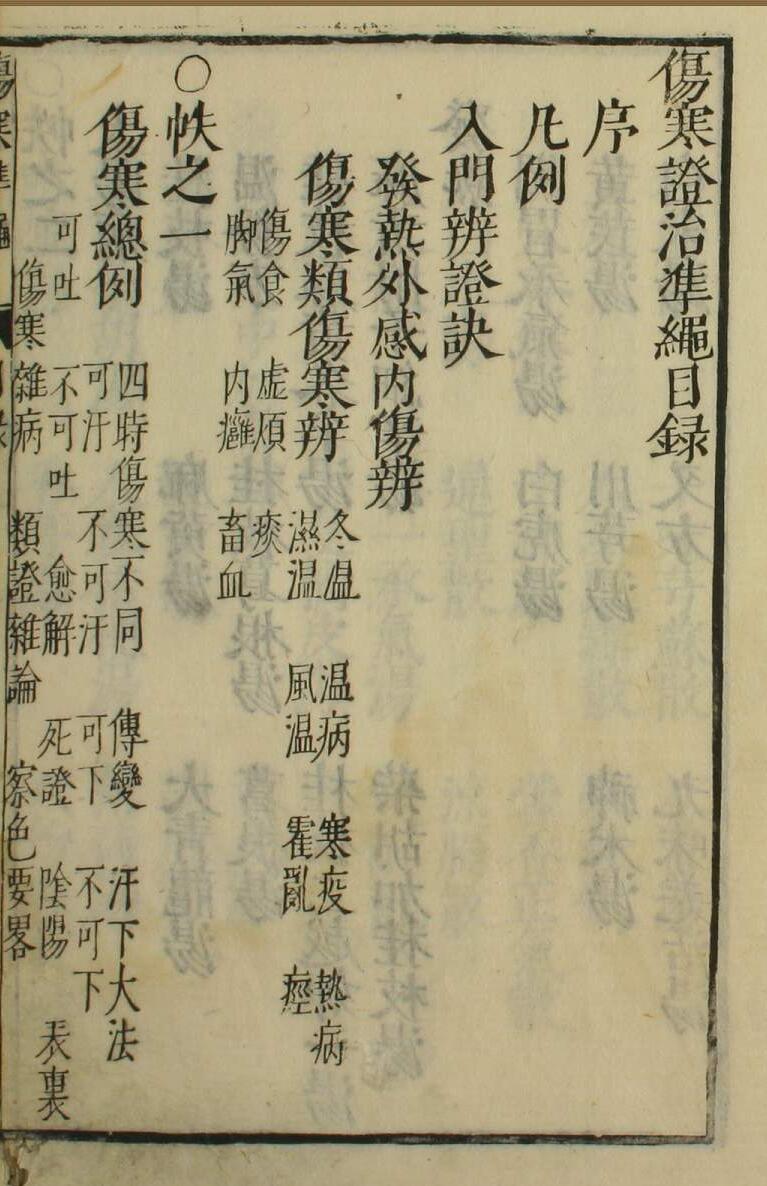 傷寒證治準繩目録
序
凡例
入門辨證訣
發熱外感内傷辨
傷寒類傷寒辨
冬温 温病 寒疫 熱病
濕温 風温 霍亂 痙
傷食 虚煩 痰
脚氣 内癰 畜血
○帙之一
傷寒總例
四時傷寒不同 傳變 汗下大法
可汗 不可汗 可下 不可下
可吐 不可吐 愈解 死證 陰陽 表裏
傷寒雜病 類證雜論 察色要畧